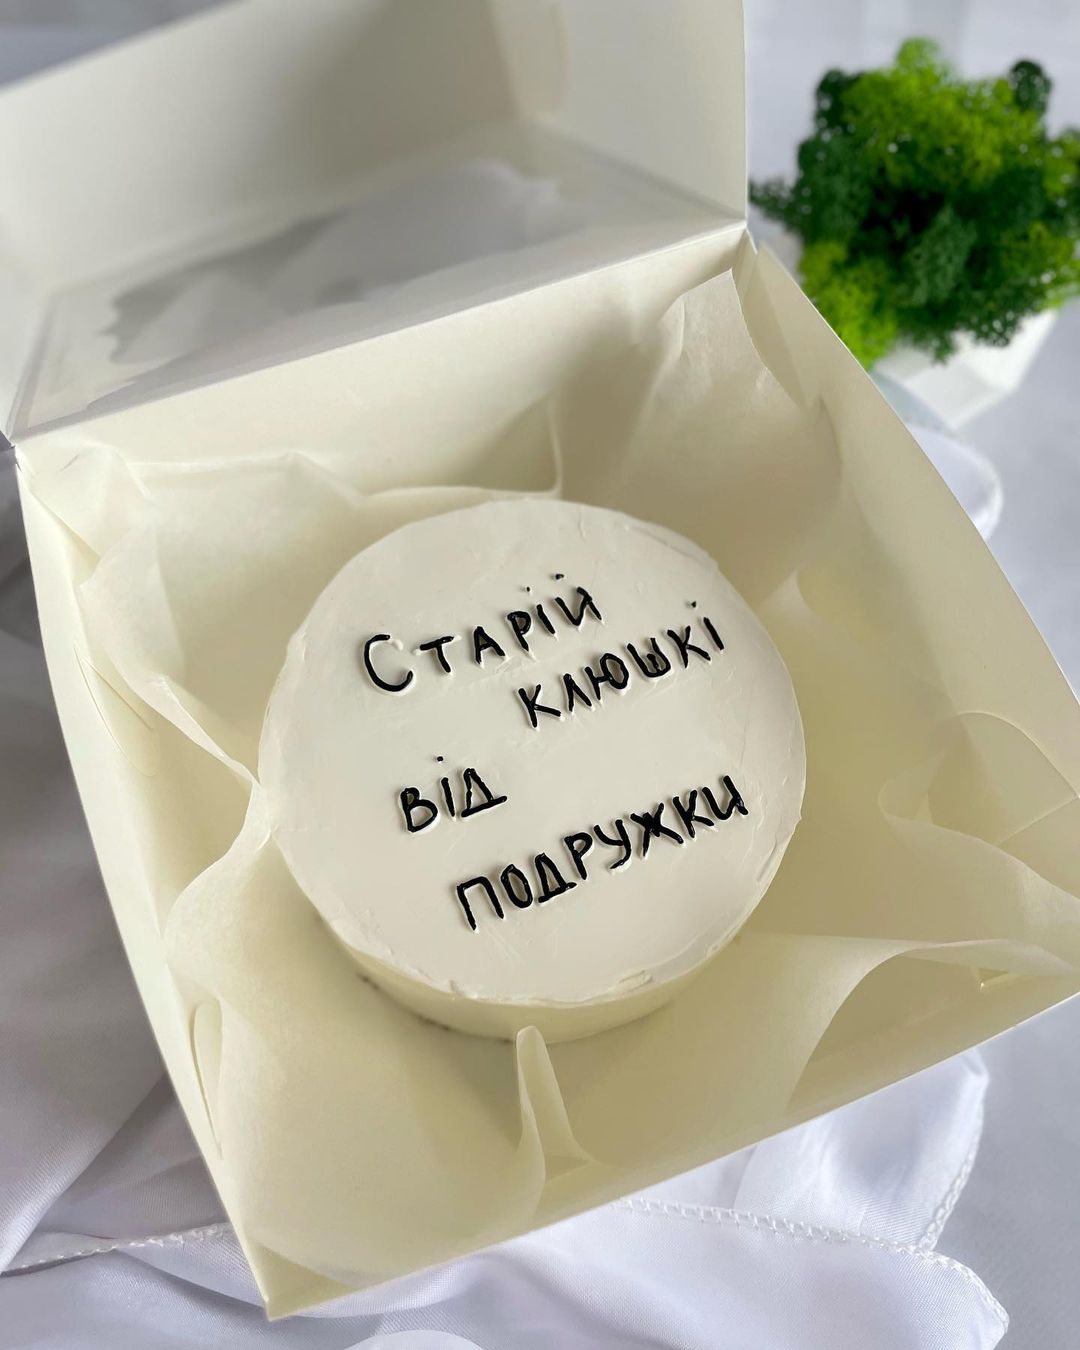 Старій
клюшкі
від
подружки